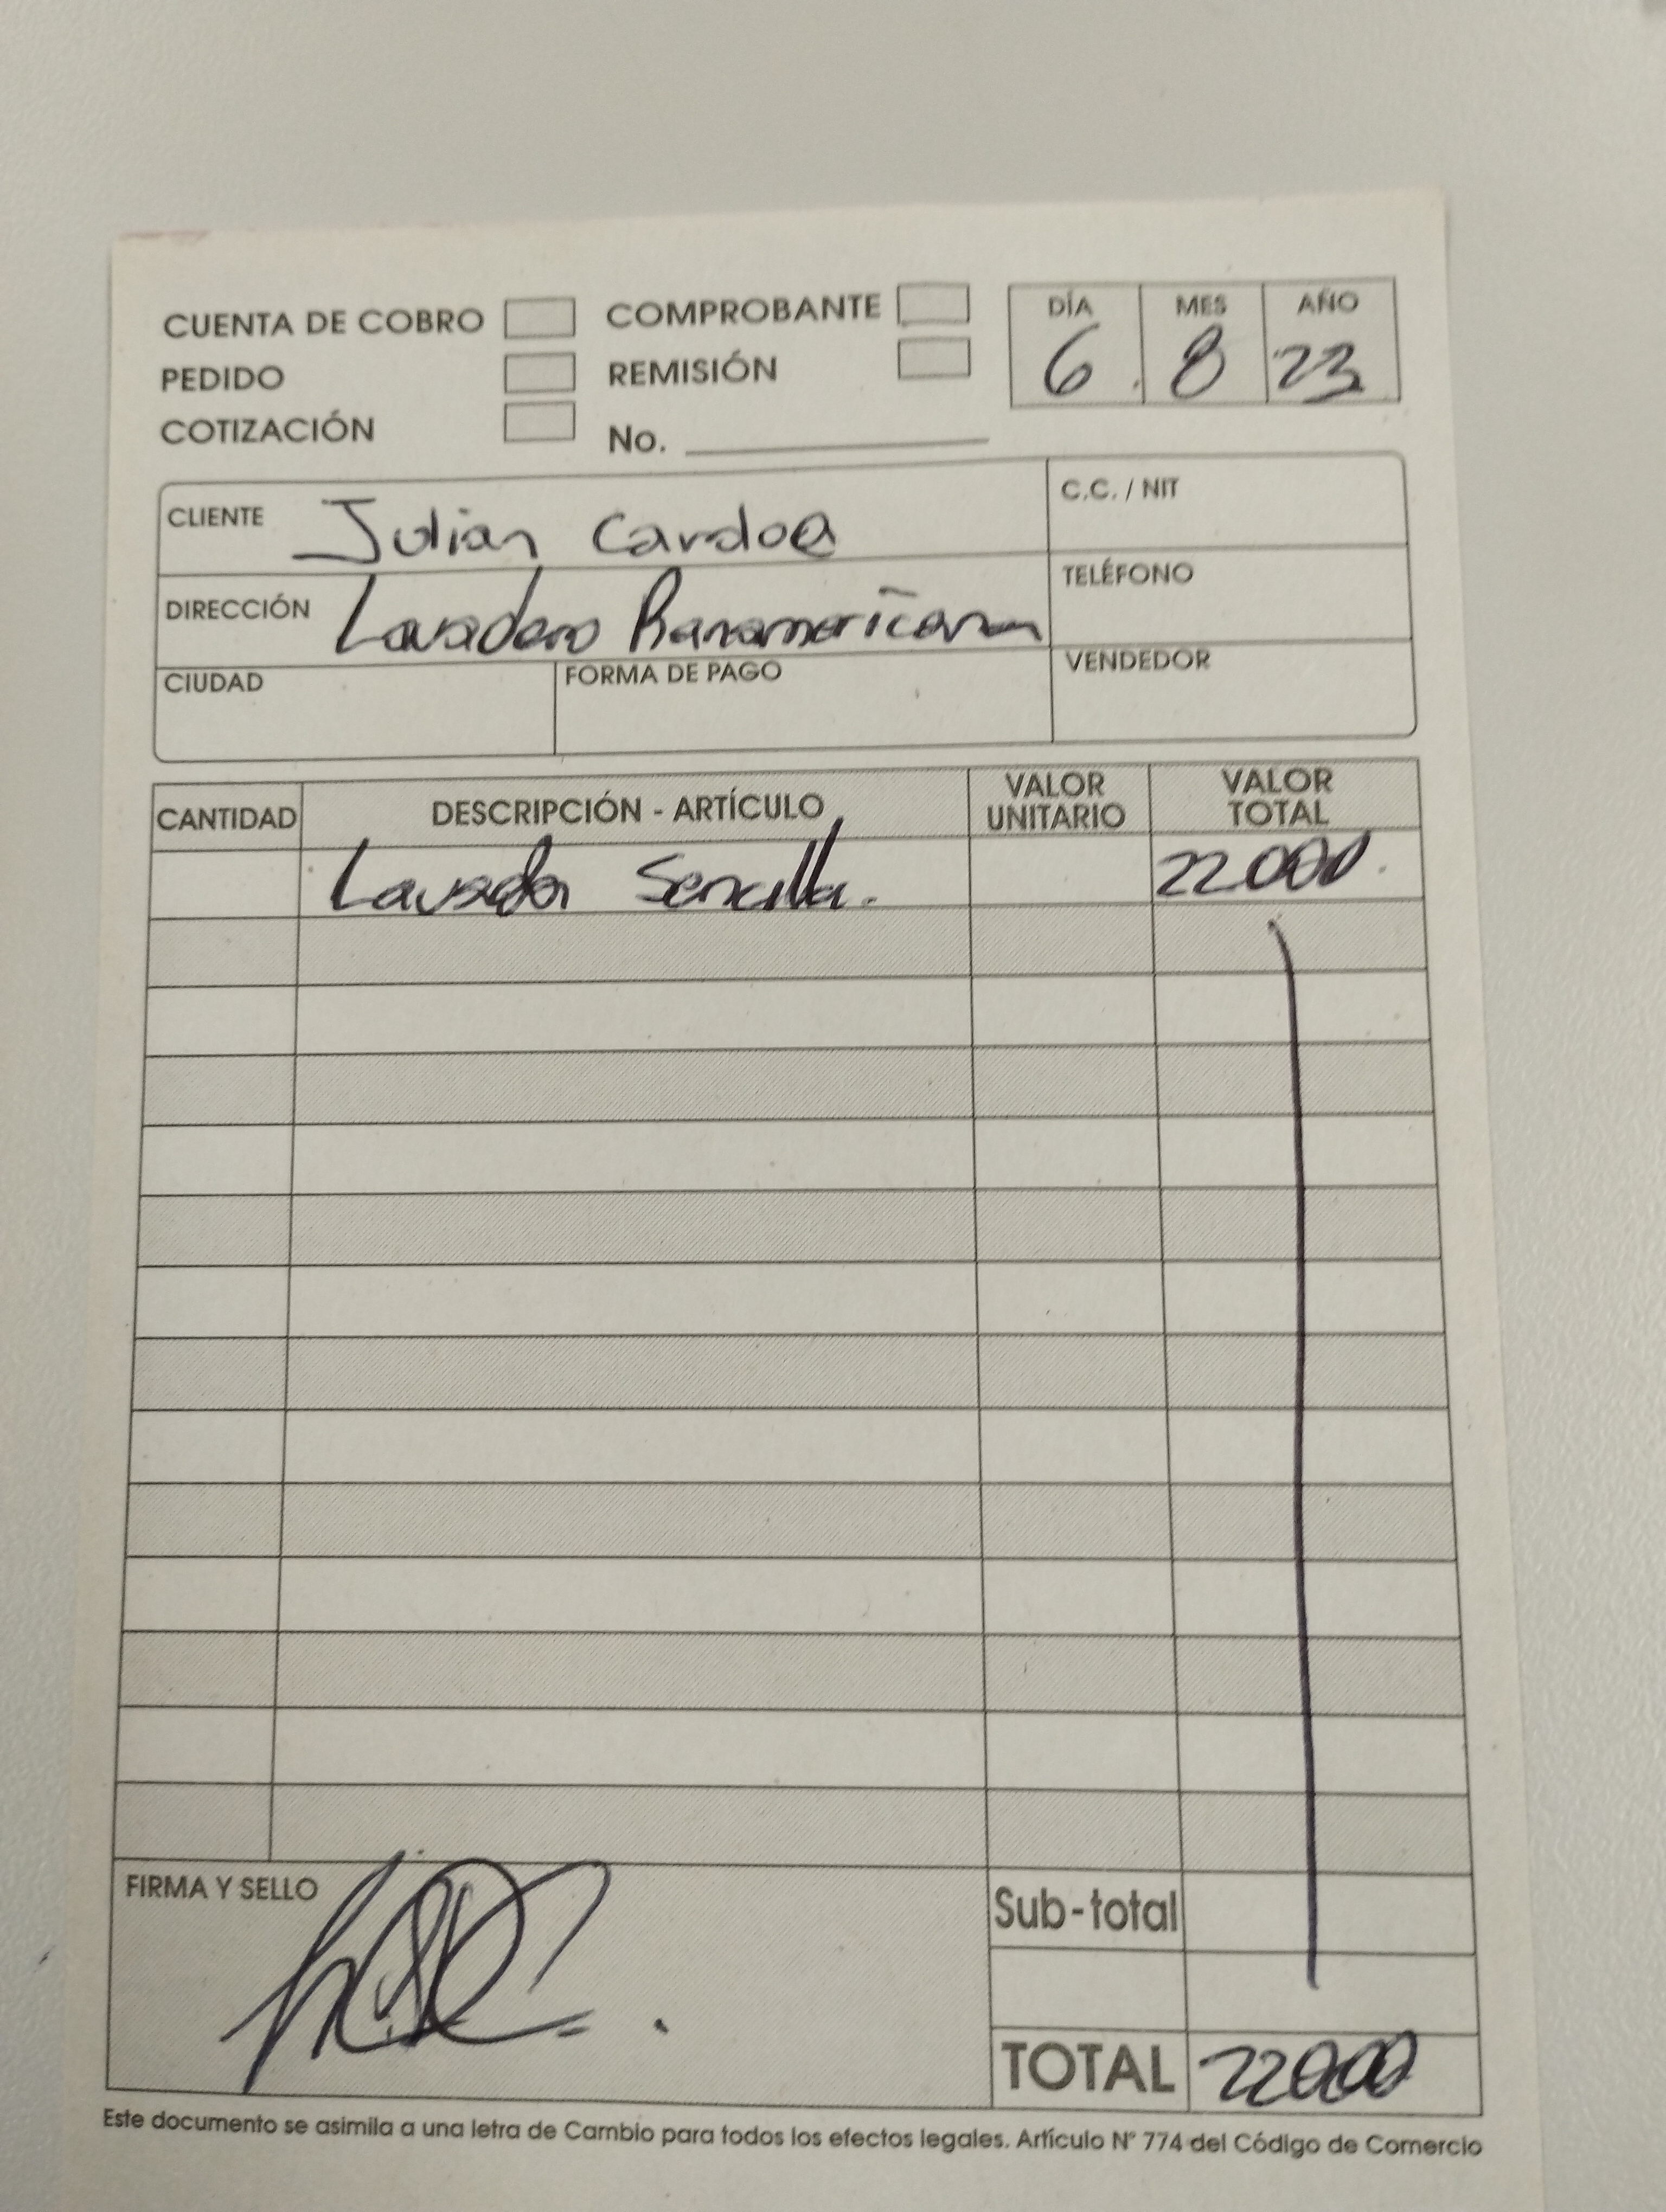 CUENTA DE COBRO COMPROBANTE DÍA MES AÑO
PEDIDO REMISIÓN 6 8 23
COTIZACIÓN No.
CLIENTE Julian Cardoa C.C. / NIT
DIRECCIÓN Lavadero Panamericana TELÉFONO
CIUDAD FORMA DE PAGO VENDEDOR
CANTIDAD DESCRIPCIÓN - ARTÍCULO VALOR UNITARIO VALOR TOTAL
Lavada Sencilla. 22000
FIRMA Y SELLO Sub-total
TOTAL 22000
Este documento se asimila a una letra de Cambio para todos los efectos legales. Artículo N° 774 del Código de Comercio